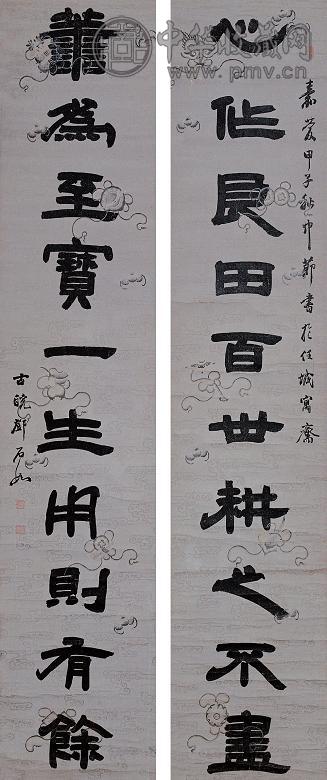 嘉慶甲子秋中節書於任城寓齋
心作良田百世耕之不盡
譱為至寶一生用則有餘
古皖鄧石如
中华收藏网
www.pmv.cn